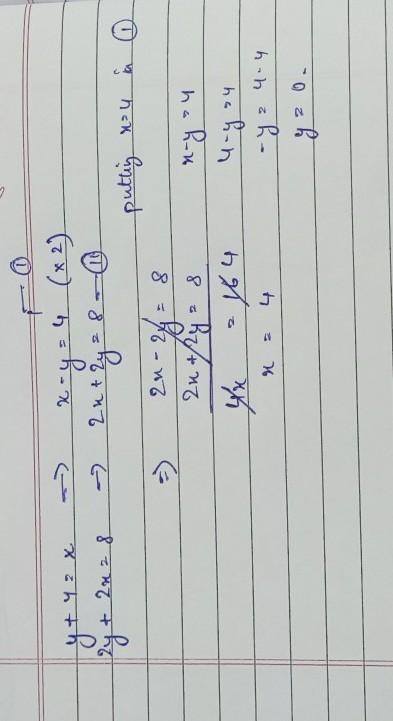 y + 4 = x → x - y = 4 (x 2) — ①
2y + 2x = 8 → 2x + 2y = 8 — ⑪
⇒ 2x - 2y = 8
2x + 2y = 8
4x = 16 4
x = 4
putting x = 4 in ①
x - y = 4
4 - y = 4
- y = 4 - 4
y = 0.